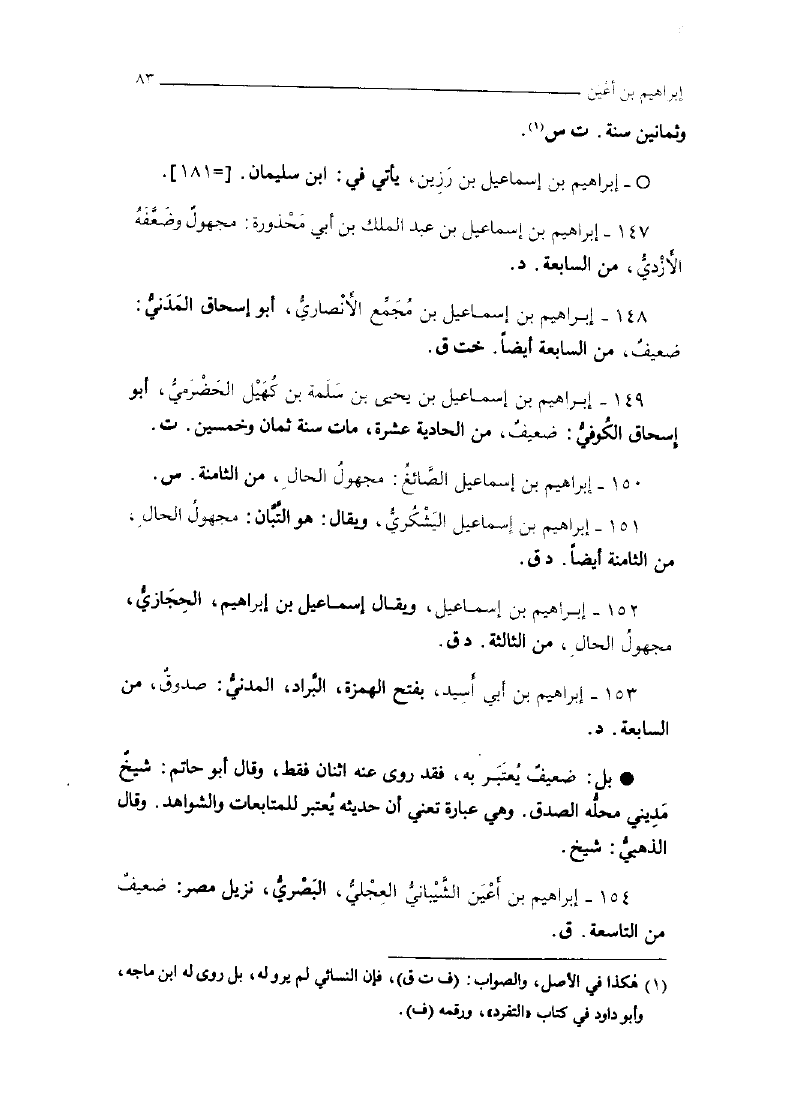 إبراهيم بن أعْيَن ٨٣
وثمانين سنة. ت س(١).
O ـ إبراهيم بن إسماعيل بن رَزِين، يأتي في: ابن سليمان. [=١٨١].
١٤٧ ـ إبراهيم بن إسماعيل بن عبد الملك بن أبي مَحْذورة: مجهولٌ وضَعَّفَهُ
الأَزْديُّ، من السابعة. د.
١٤٨ ـ إبراهيم بن إسماعيل بن مُجَمِّع الأنْصاريُّ، أبو إسحاق المَدَنيُّ:
ضعيفٌ، من السابعة أيضاً. خت ق.
١٤٩ ـ إبراهيم بن إسماعيل بن يحيى بن سَلَمة بن كُهَيْل الحَضْرَميُّ، أبو
إسحاق الكُوفيُّ: ضعيفٌ، من الحادية عشرة، مات سنة ثمان وخمسين. ت.
١٥٠ ـ إبراهيم بن إسماعيل الصَّائغُ: مجهولُ الحالِ، من الثامنة. س.
١٥١ ـ إبراهيم بن إسماعيل اليَشْكُريُّ، ويقال: هو التُّبَّان: مجهولُ الحالِ،
من الثامنة أيضاً. د ق.
١٥٢ ـ إبراهيم بن إسماعيل، ويقال إسماعيل بن إبراهيم، الحِجَازيُّ،
مجهولُ الحالِ، من الثالثة. د ق.
١٥٣ ـ إبراهيم بن أبي أَسِيد، بفتح الهمزة، البُّراد، المدنيُّ: صدوقٌ، من
السابعة. د.
● بل: ضعيفٌ يُعتَبَر به، فقد روى عنه اثنان فقط، وقال أبو حاتم: شيخٌ
مَدِيني محلُّه الصدق. وهي عبارة تعني أن حديثه يُعتبر للمتابعات والشواهد. وقال
الذهبيُّ: شيخ.
١٥٤ ـ إبراهيم بن أَعْيَن الشَّيْبانيُّ العِجْليُّ، البَصْريُّ، نزيل مصر: ضعيفٌ
من التاسعة. ق.
(١) هٰكذا في الأصل، والصواب: (ف ت ق)، فإن النسائي لم يرو له، بل روى له ابن ماجه،
وأبو داود في كتاب «التفرد»، ورقمه (ف).